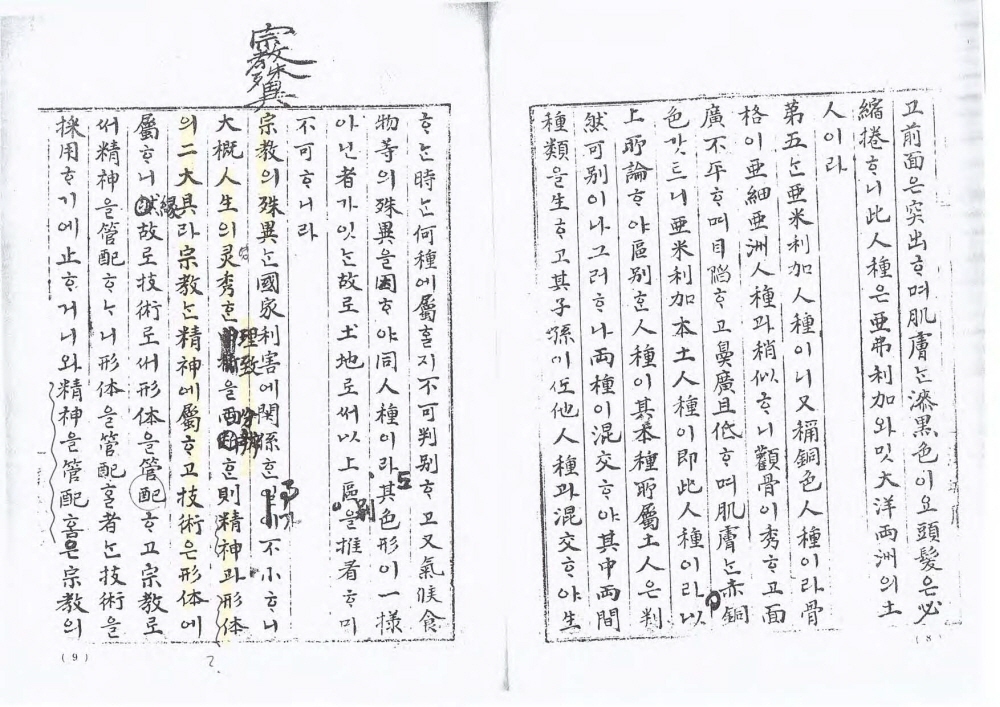 고前面은突出ᄒᆞ며肌膚ᄂᆞᆫ漆黑色이요頭髮은必
縮捲ᄒᆞ니此人種은亞弗利加와밋大洋両洲의土
人이라
第五ᄂᆞᆫ亜米利加人種이니又稱銅色人種이라骨
格이亜細亜洲人種과稍似ᄒᆞ니顴骨이秀ᄒᆞ고面
廣不平ᄒᆞ며目陷ᄒᆞ고鼻廣且低ᄒᆞ며肌膚ᄂᆞᆫ赤銅
色갓트니亜米利加本土人種이即此人種이라以
上所論ᄒᆞ야區别ᄒᆞᆫ人種이其本種所屬土人은判
然可别이나그러ᄒᆞ나両種이混交ᄒᆞ야其中両間
種類을生ᄒᆞ고其子孫이任他人種과混交ᄒᆞ야生
(8)
ᄒᆞᄂᆞᆫ時ᄂᆞᆫ何種에屬ᄒᆞᆯ지不可判别ᄒᆞ고又氣候食
物等의殊異을因ᄒᆞ야同人種이라其色形이一様
5
아닌者가잇ᄂᆞᆫ故로土地로써以上區을推看ᄒᆞ미
别
不可ᄒᆞ니라
宗教殊異
宗教의殊異ᄂᆞᆫ國家利害에関係ᄒᆞᆫ이不小ᄒᆞ니
大概人生의灵秀ᄒᆞᆫ을ᄒᆞᆫ則精神과形体
理致
分辨
의二大具라宗教ᄂᆞᆫ精神에屬ᄒᆞ고技術은形体에
屬ᄒᆞ니故로技術로써形体을管配ᄒᆞ고宗教로
然緣
써精神을管配ᄒᆞᄂᆞ니形体을管配ᄒᆞᆯ者ᄂᆞᆫ技術을
採用ᄒᆞ기에止ᄒᆞ거니와精神을管配홈은宗教의
(9)
2